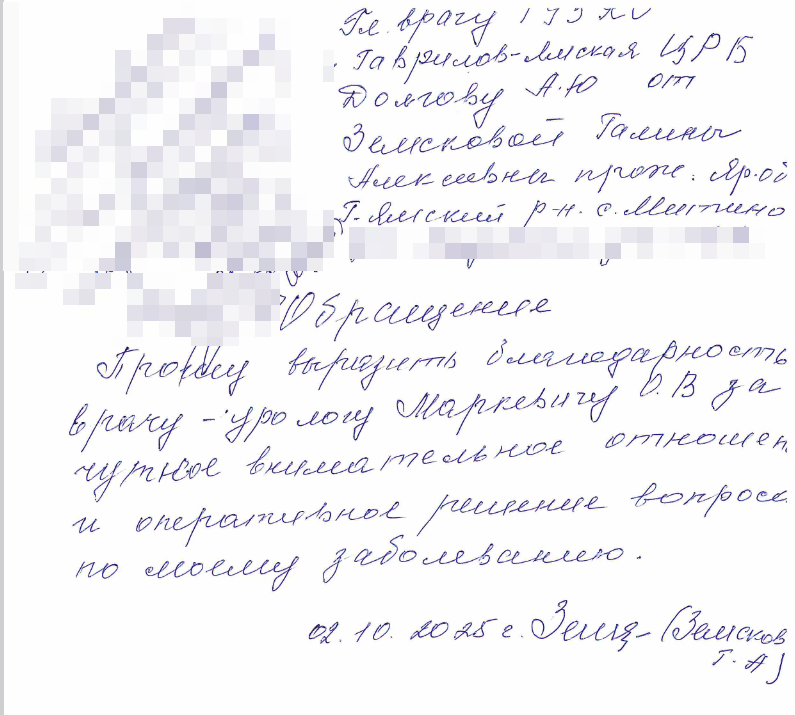 Гл. врачу
Гаврилов-Ямская ЦРБ
Долгову А.Ю от
Земсковой Галины
Алексеевны прож. Яр.об
Г-Ямский р-н. с. Митино
Обращение
Прошу выразить благодарность
врачу - урологу Маркевичу О.В за
чуткое внимательное отношен
и оперативное решение вопроса
по моему заболеванию.
02.10.2025 г. (Земсков
Г. А)